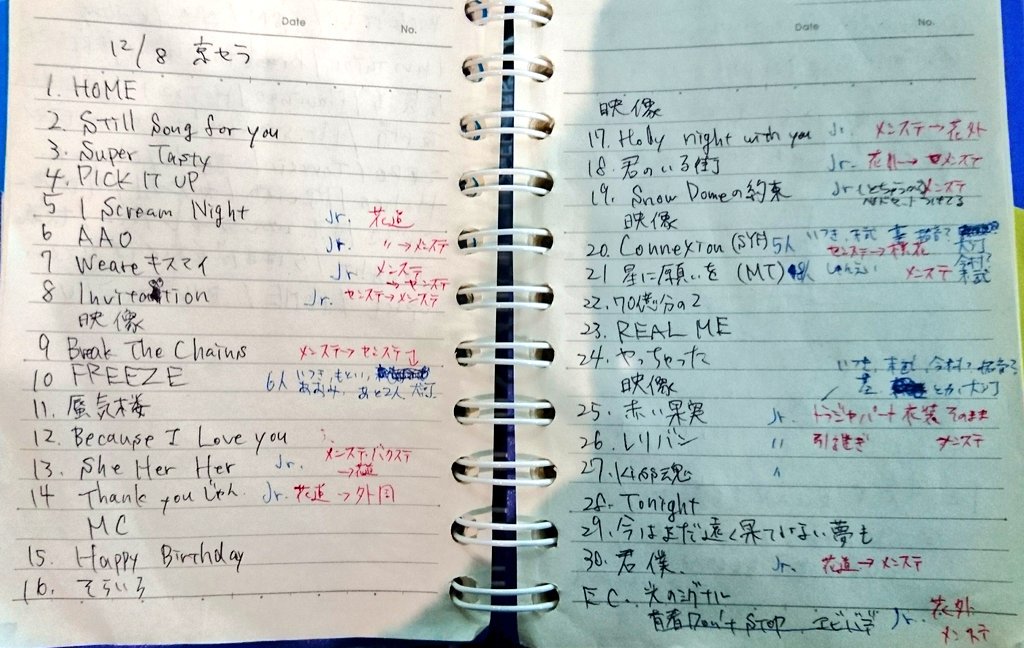 Date
No.
12/8 京セラ
1. HOME
2. Still Song for you
3. Super Tasty
4. PICK IT UP
5 I Scream Night Jr. 花道
6 AAO Jr. 〃→メンステ
7 Weare キスマイ Jr. メンステ→センステ
8 Invitation Jr. センステ→メンステ
映像
9 Break The Chains メンステ→センステ
10 FREEZE 6人 いつき, もとい,
あおみ, あと2人, 大灯
11. 蜃気楼
12. Because I Love you
13. She Her Her Jr. メンステ・バクステ
→花道
14 Thank youじゃん Jr. 花道→外周
MC
15. Happy Birthday
16. そらいろ
Date
No.
映像
17. Holy night with you Jr. メンステ→花外
18. 君のいる街 Jr. 花外→メンステ
19. Snow Domeの約束 Jr メンステ
映像
20. Connexion 5人 センステ→
21 星に願いを (MT) メンステ
22. 70億分の2
23. REAL ME
24. やっちゃった
映像
25. 赤い果実 Jr. 衣装そのまま
26. レリバン 〃 引き継ぎ メンステ
27. Kis魂 〃
28. Tonight
29. 今はまだ遠く果てしない夢も
30. 君僕. Jr. 花道→メンステ
EC. 光のシグナル
Don't STOP エビバデ Jr. 花外
メンステ